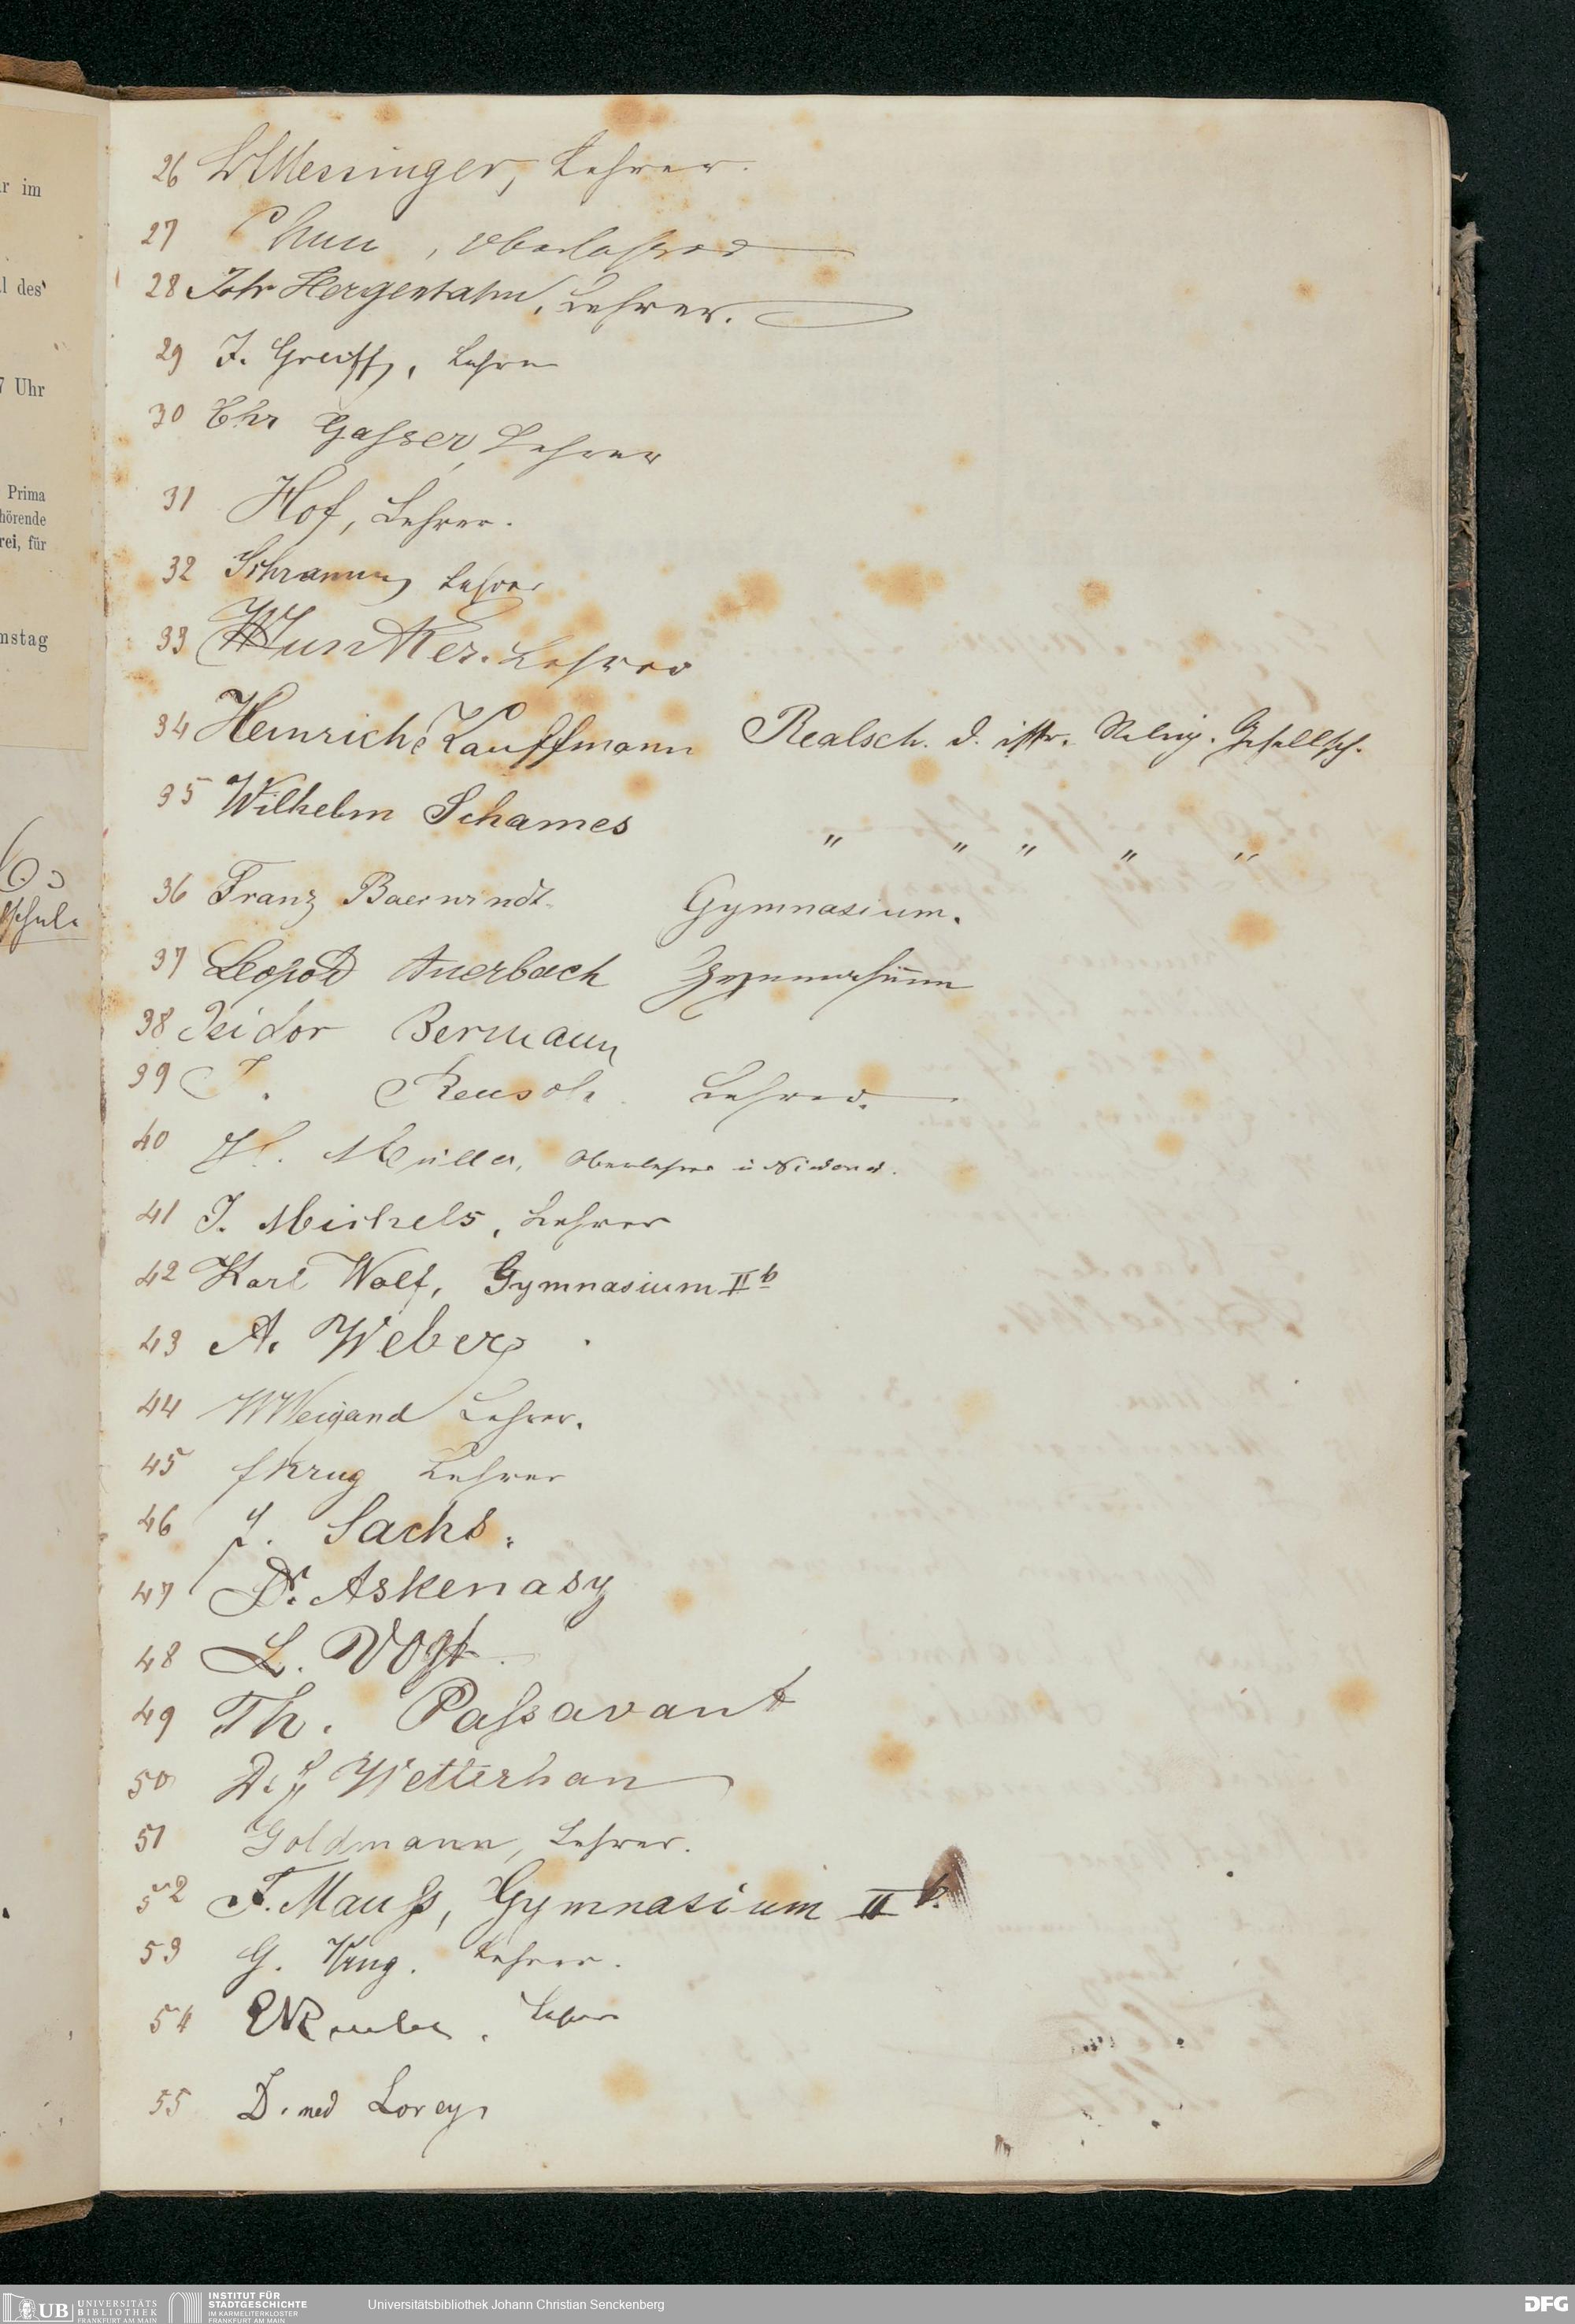 r im
l des
7 Uhr
Prima
hörende
rei, für
mstag
schule
26 Messinger, Lehrer.
27 Chun, Oberlehrer
28 Joh Hergenhahn, Lehrer.
29 J. Greiff, Lehrer
30 Chr Gasser, Lehrer
31 Hof, Lehrer.
32 Schramm Lehrer
33 Wunker. Lehrer
34 Heinrich Kauffmann Realsch. d. isr. Relig. Gesellsch.
35 Wilhelm Schames " " " " "
36 Franz Baerwindt. Gymnasium.
37 Leopold Auerbach Gymnasium
38 Isidor Bermann
39 J. Reusch. Lehrer.
40 H. Müller, Oberlehrer
41 J. Michels, Lehrer
42 Karl Wolf, Gymnasium IIb
43 A. Weber
44 W Weigand Lehrer.
45 f Krug Lehrer
46 J. Sachs.
47 Dr. Askenasy
48 L. Vogt
49 Th. Paſsavant
50 D. J Wetterhan
51 Goldmann, Lehrer.
52 F. Mauſs, Gymnasium IIb.
53 G. Krug. Lehrer.
54 Lehrer
55 D. med Lorey
UB UNIVERSITÄTS
BIBLIOTHEK
FRANKFURT AM MAIN
INSTITUT FÜR
STADTGESCHICHTE
IM KARMELITERKLOSTER
FRANKFURT AM MAIN
Universitätsbibliothek Johann Christian Senckenberg
DFG